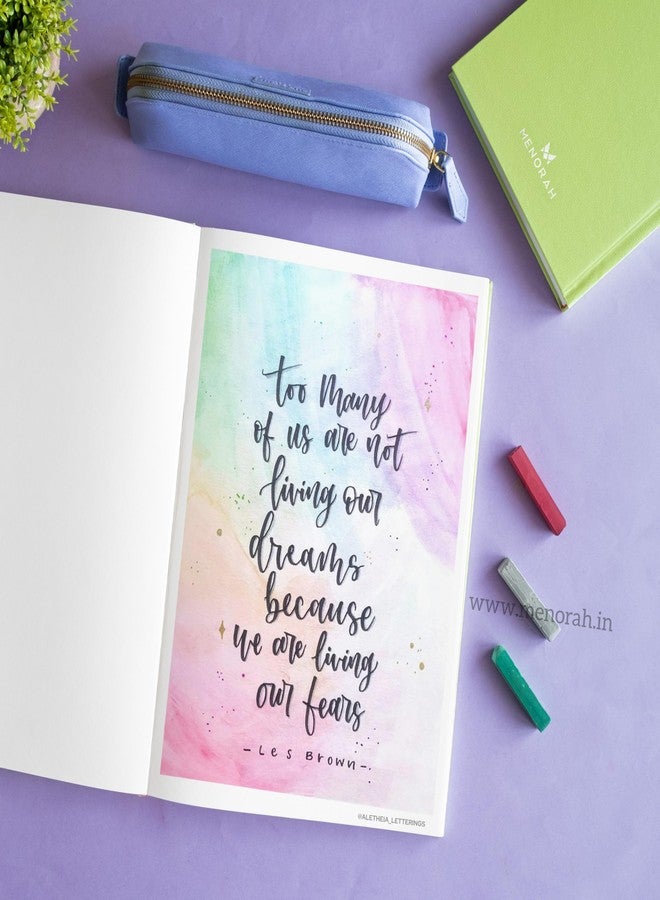 MENORAH
too many
of us are not
living our
dreams
because
we are living
our fears
- Les Brown -
@ALETHEIA_LETTERINGS
www.menorah.in